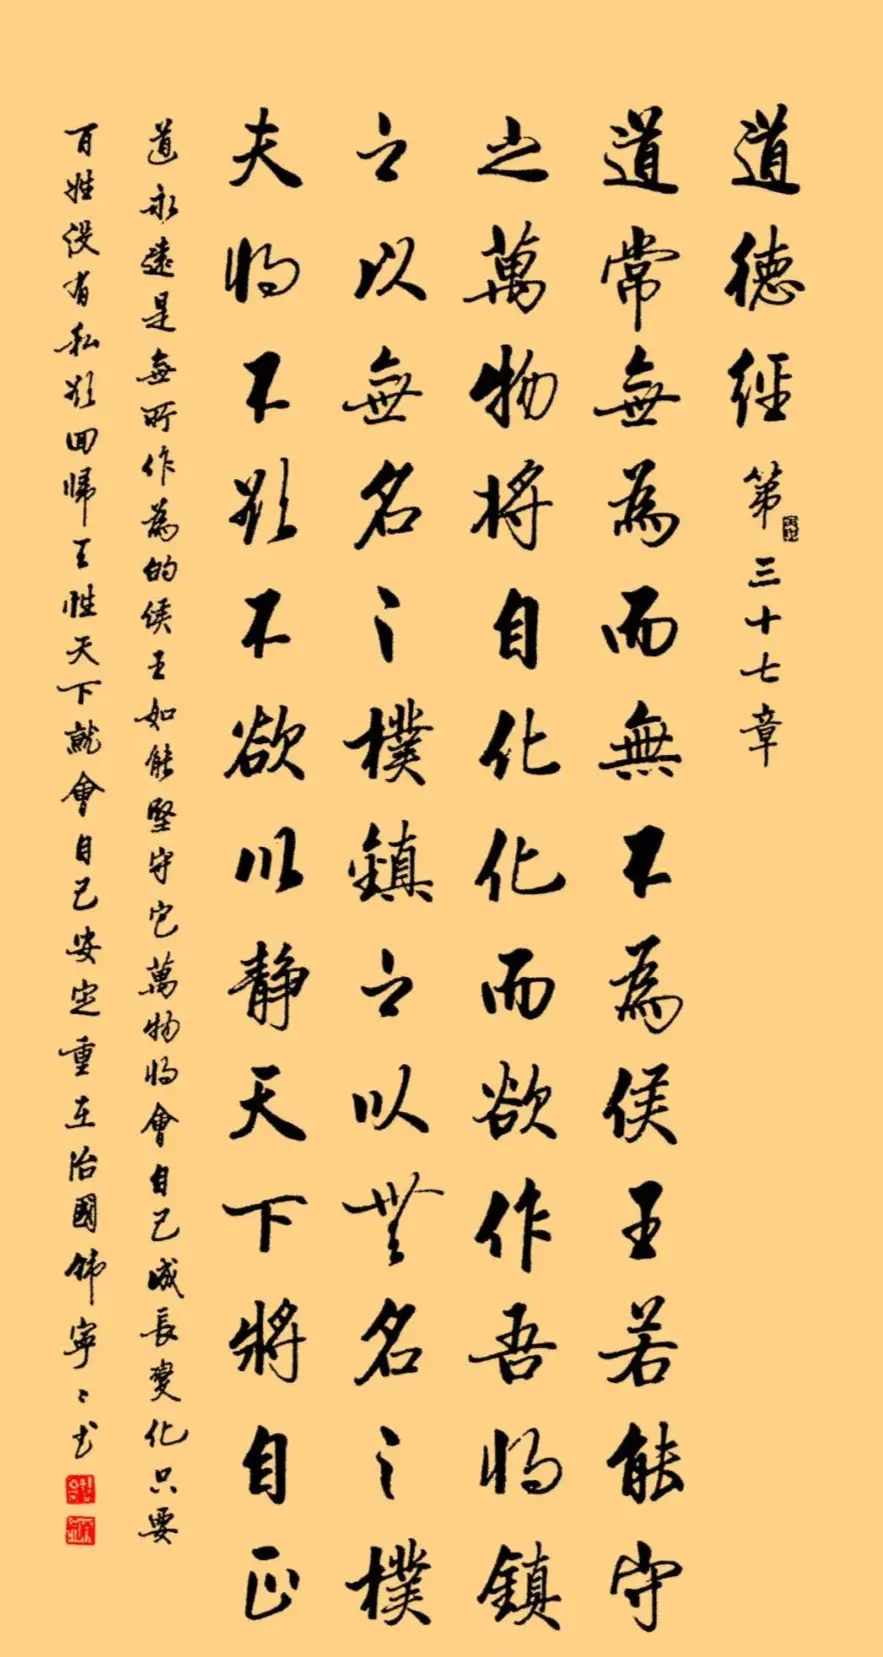 道德經第三十七章
道常無為而無不為侯王若能守
之萬物將自化化而欲作吾将鎮
之以無名之樸鎮之以無名之樸
夫将不欲不欲以静天下將自正
道永遠是無所作為的侯王如能堅守它萬物将會自己成長變化只要
百姓没有私欲回歸王性天下就會自己安定重在治國 寧〻书